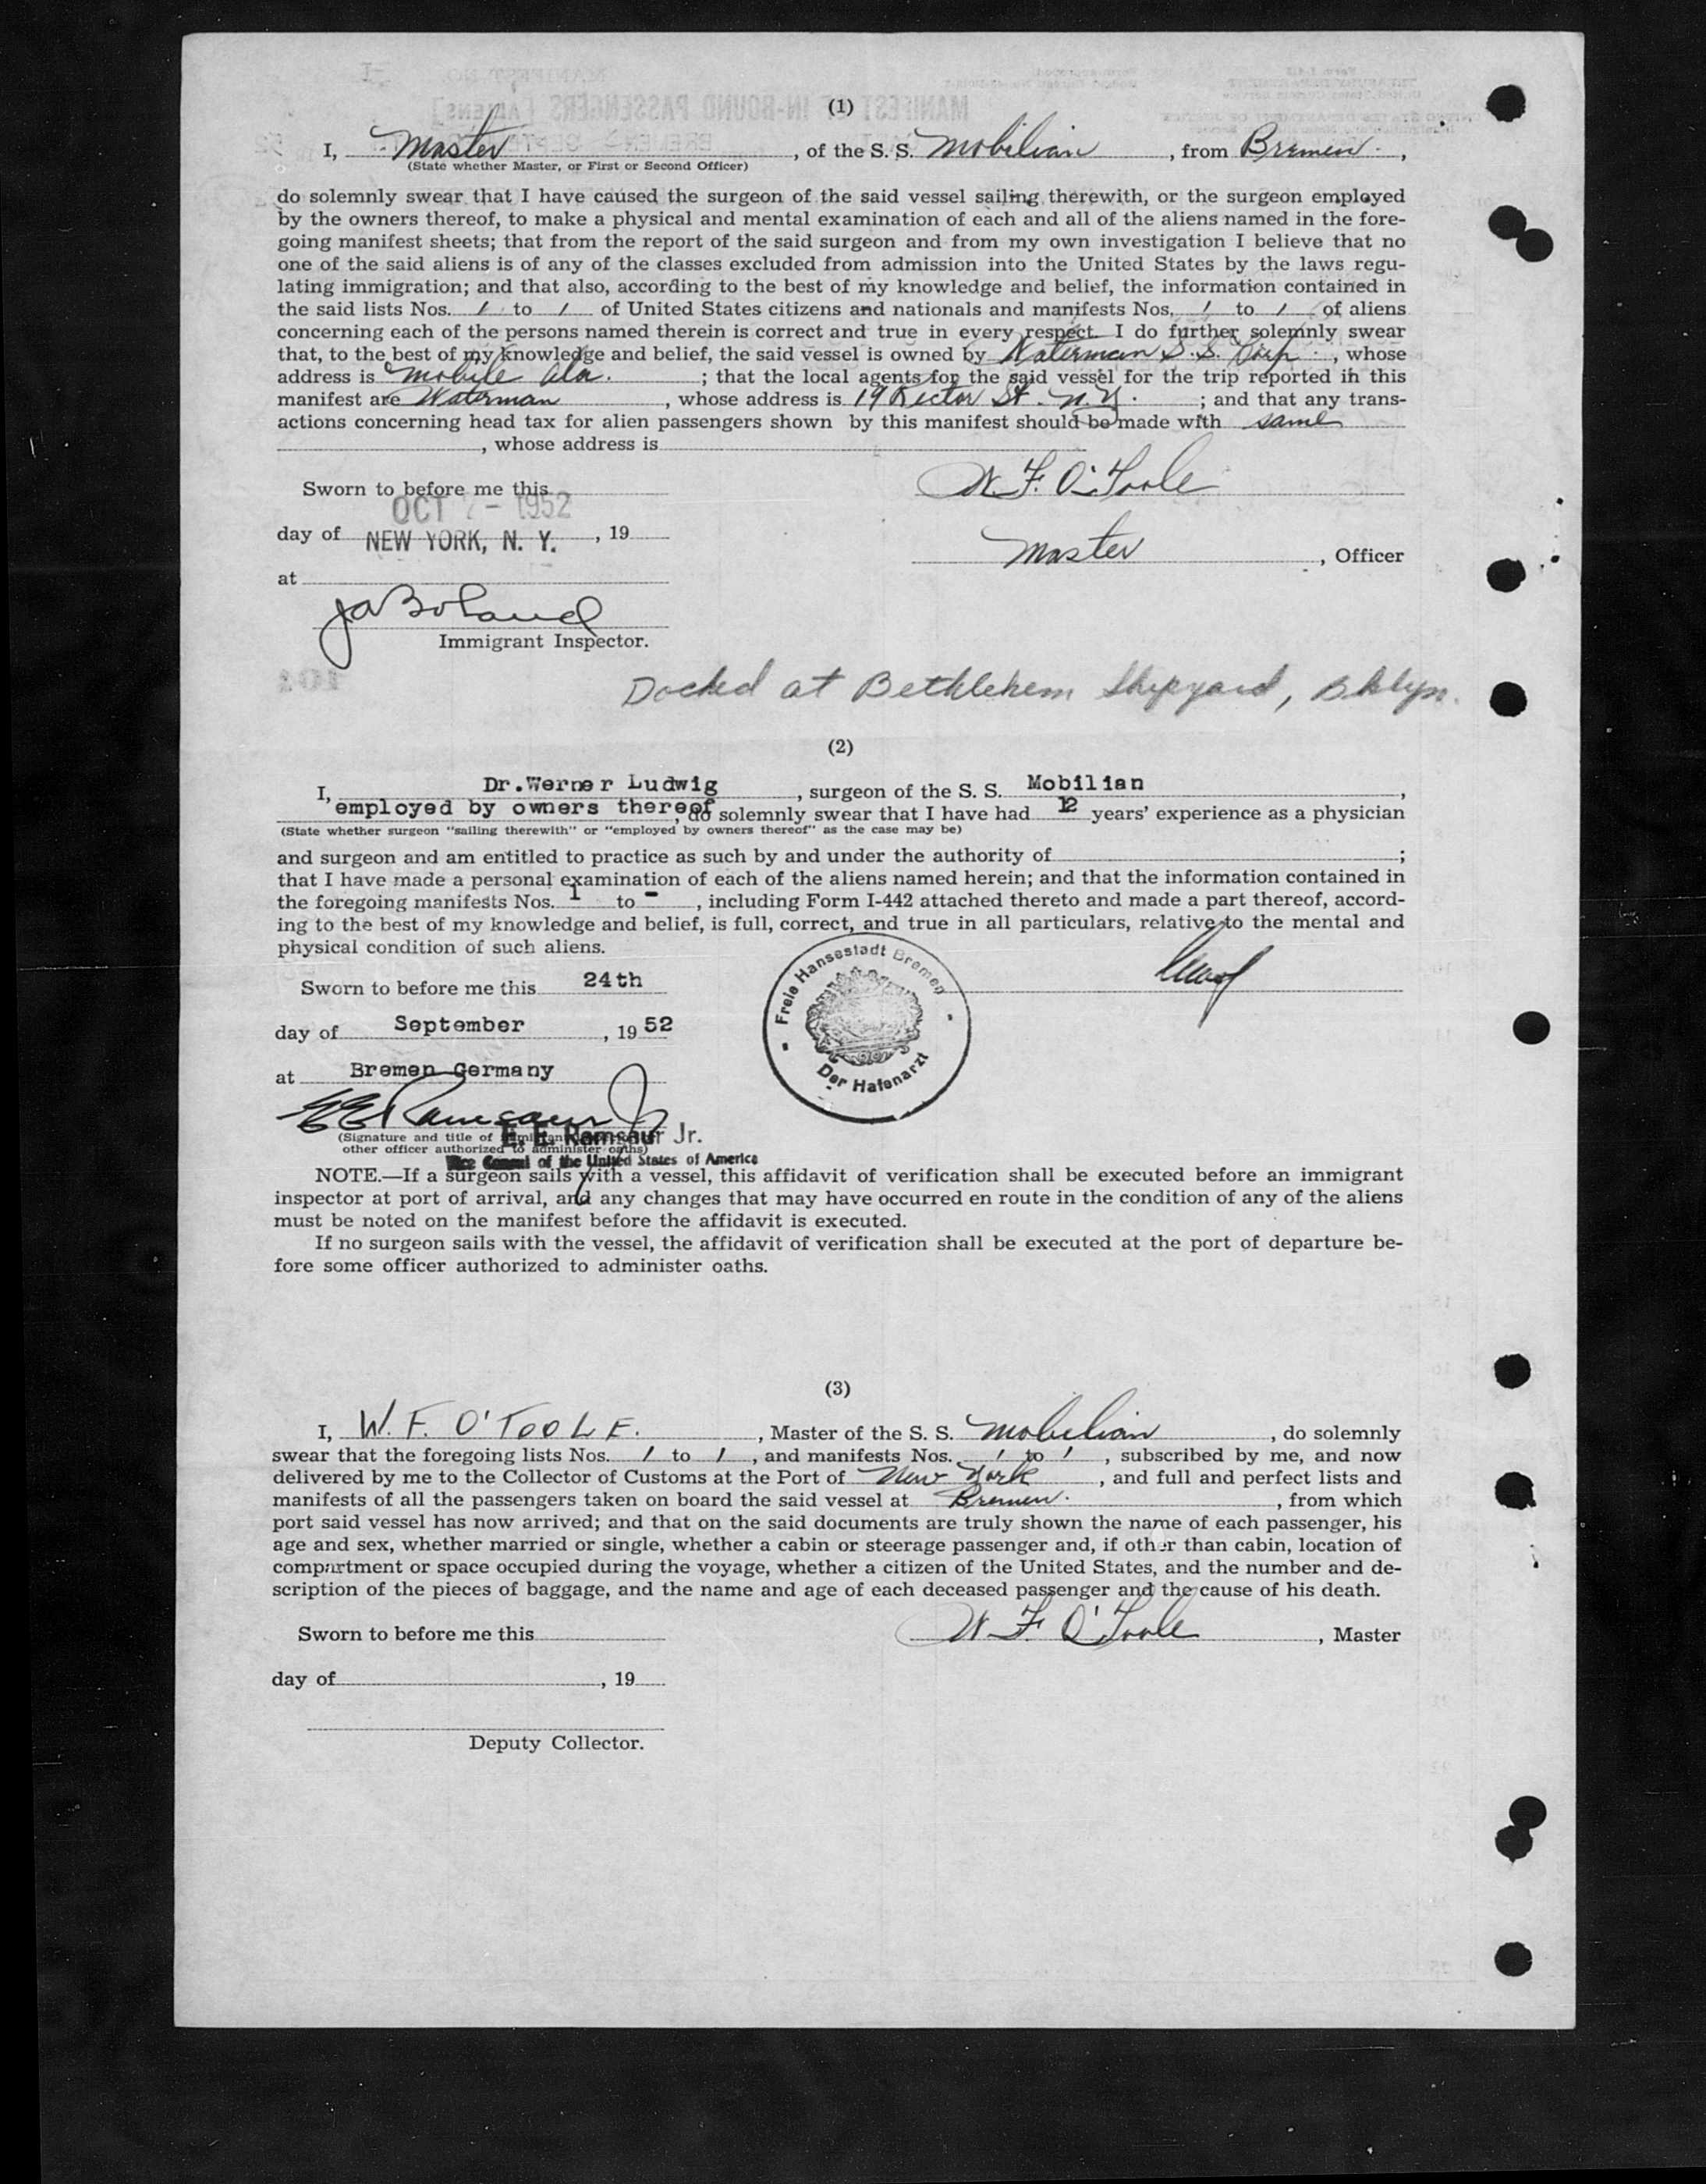 (1)
I, Master, of the S. S. Mobilian, from Bremen.,
(State whether Master, or First or Second Officer)
do solemnly swear that I have caused the surgeon of the said vessel sailing therewith, or the surgeon employed
by the owners thereof, to make a physical and mental examination of each and all of the aliens named in the fore-
going manifest sheets; that from the report of the said surgeon and from my own investigation I believe that no
one of the said aliens is of any of the classes excluded from admission into the United States by the laws regu-
lating immigration; and that also, according to the best of my knowledge and belief, the information contained in
the said lists Nos. 1 to 1 of United States citizens and nationals and manifests Nos. 1 to 1 of aliens
concerning each of the persons named therein is correct and true in every respect. I do further solemnly swear
that, to the best of my knowledge and belief, the said vessel is owned by Waterman S.S. Corp., whose
address is Mobile Ala. ; that the local agents for the said vessel for the trip reported in this
manifest are Waterman, whose address is 19 Rector St. N.Y. ; and that any trans-
actions concerning head tax for alien passengers shown by this manifest should be made with same
, whose address is
Sworn to before me this
W. F. O'Toole
OCT - 1952
day of NEW YORK, N. Y., 19
Master, Officer
at
J A Boland
Immigrant Inspector.
Docked at Bethlehem Shipyard, Bklyn.
(2)
I, Dr.Werner Ludwig, surgeon of the S. S. Mobilian,
employed by owners thereof, do solemnly swear that I have had 12 years' experience as a physician
(State whether surgeon "sailing therewith" or "employed by owners thereof" as the case may be)
and surgeon and am entitled to practice as such by and under the authority of ;
that I have made a personal examination of each of the aliens named herein; and that the information contained in
the foregoing manifests Nos. 1 to -, including Form I-442 attached thereto and made a part thereof, accord-
ing to the best of my knowledge and belief, is full, correct, and true in all particulars, relative to the mental and
physical condition of such aliens.
Freie Hansestadt Bremen
Der Hafenarzt
Sworn to before me this 24th
day of September, 1952
at Bremen Germany
E E Ramsaur Jr
(Signature and title of immigrant
E. E. Ramsaur Jr.
other officer authorized to administer oaths)
Vice Consul of the United States of America
NOTE.—If a surgeon sails with a vessel, this affidavit of verification shall be executed before an immigrant
inspector at port of arrival, and any changes that may have occurred en route in the condition of any of the aliens
must be noted on the manifest before the affidavit is executed.
If no surgeon sails with the vessel, the affidavit of verification shall be executed at the port of departure be-
fore some officer authorized to administer oaths.
(3)
I, W. F. O'TOOLE., Master of the S. S. Mobilian, do solemnly
swear that the foregoing lists Nos. 1 to 1, and manifests Nos. 1 to 1, subscribed by me, and now
delivered by me to the Collector of Customs at the Port of New York, and full and perfect lists and
manifests of all the passengers taken on board the said vessel at Bremen., from which
port said vessel has now arrived; and that on the said documents are truly shown the name of each passenger, his
age and sex, whether married or single, whether a cabin or steerage passenger and, if other than cabin, location of
compartment or space occupied during the voyage, whether a citizen of the United States, and the number and de-
scription of the pieces of baggage, and the name and age of each deceased passenger and the cause of his death.
Sworn to before me this
W. F. O'Toole, Master
day of , 19
Deputy Collector.